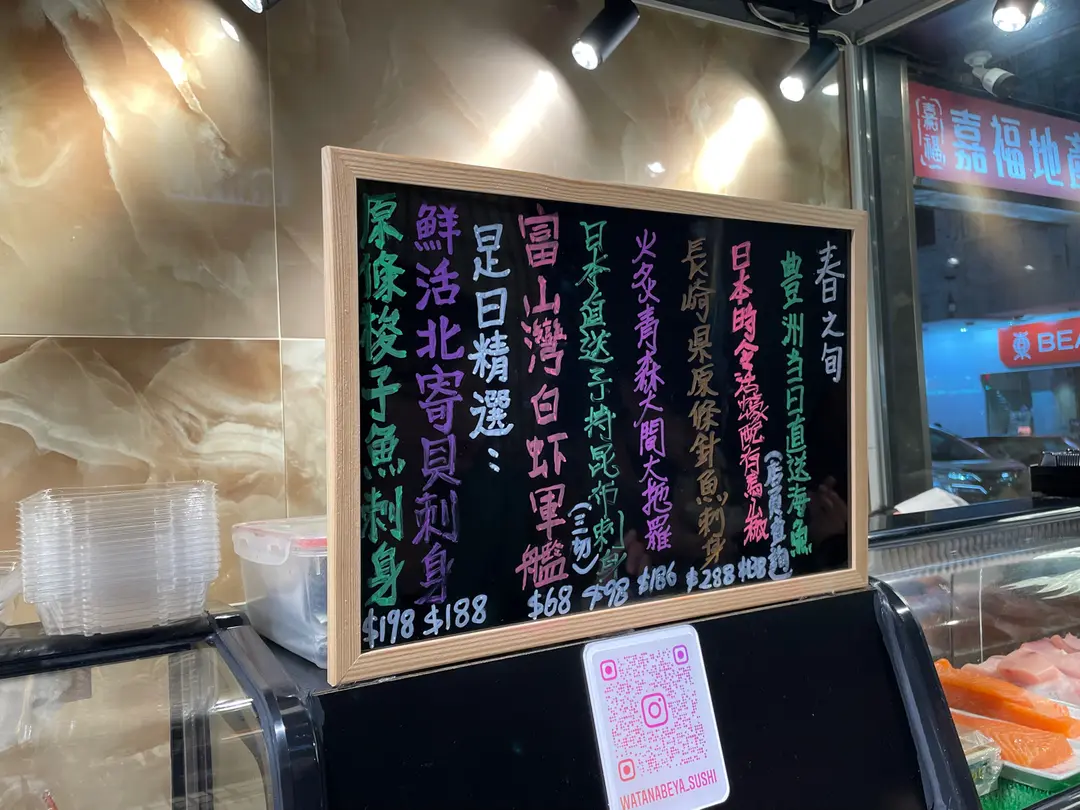 春之旬
豊洲当日直送海魚
(店員查詢)
日本時令活蠔配有馬山椒
$138
長崎県原條針魚刺身
$288
火炙青森大間大拖羅
$186
日本直送子持昆布刺身
(三切)
$98
富山灣白虾軍艦
$68
是日精選：
鮮活北寄貝刺身
$188
原條梭子魚刺身
$198
WATANABEYA_SUSHI
嘉福
嘉福地產
BEA